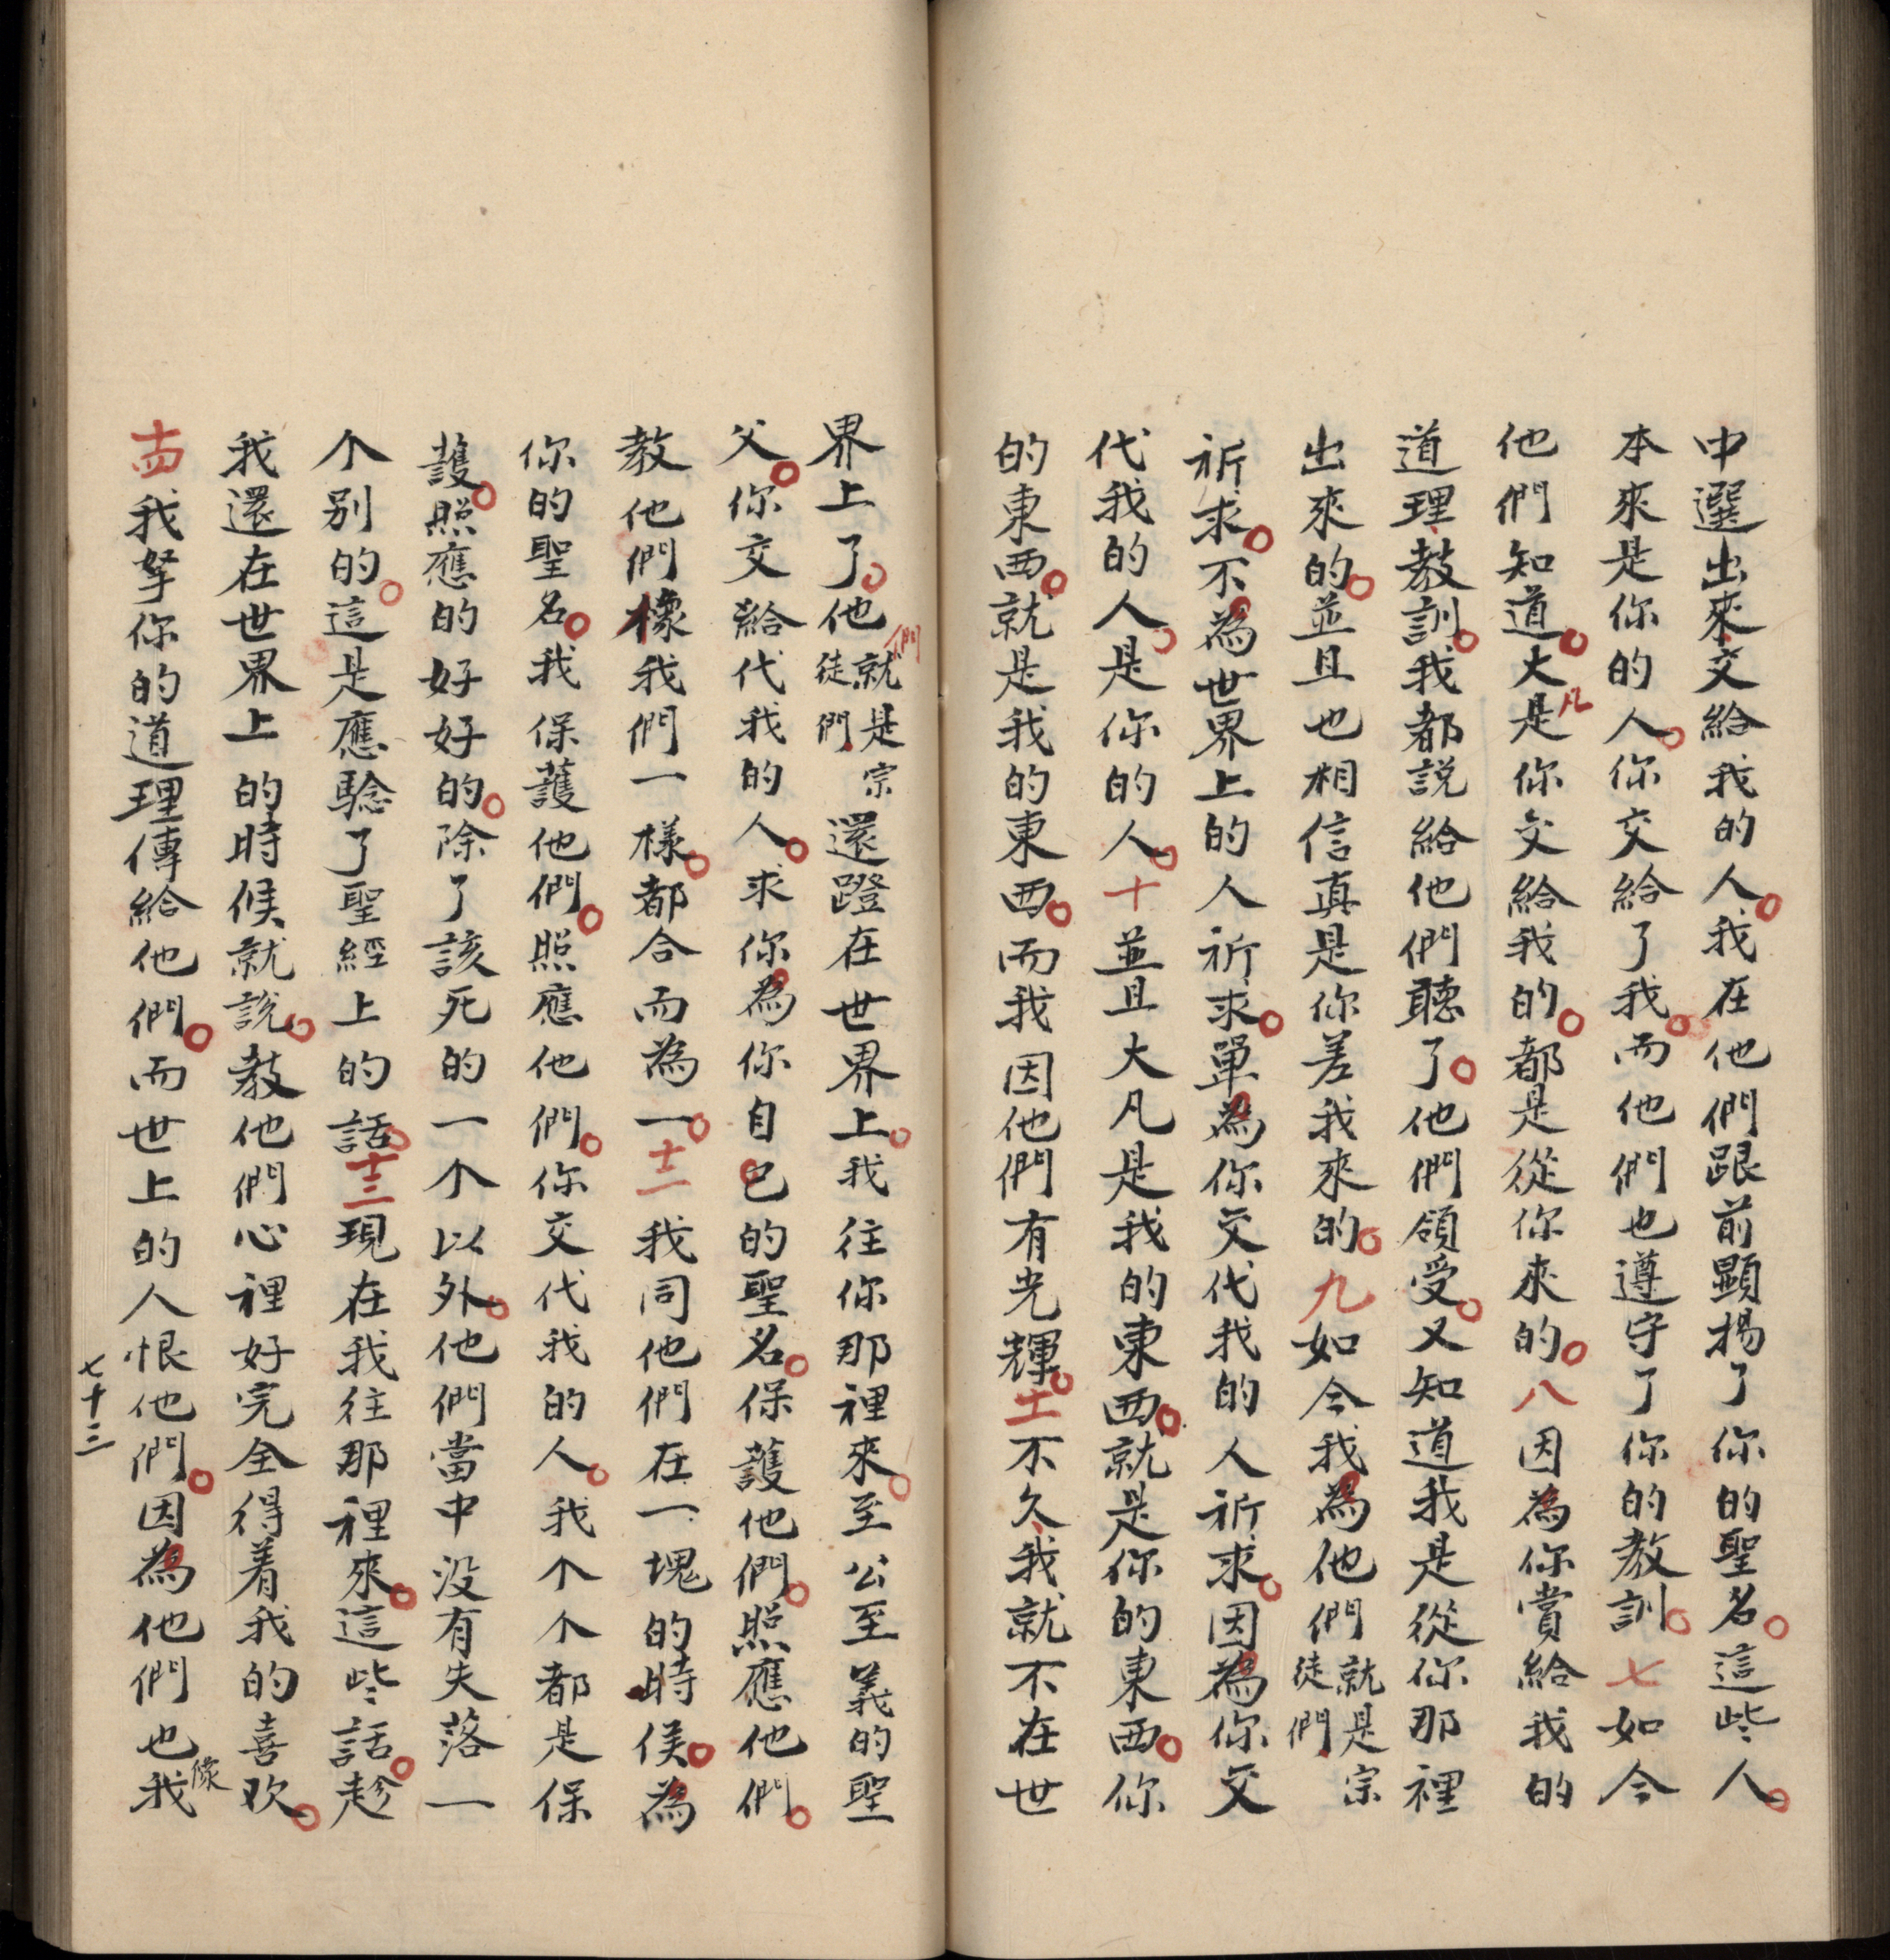 中選出來交給我的人。我在他們跟前顯揚了你的聖名。這些人。
本來是你的人。你交給了我。而他們也遵守了你的教訓。七如今
他們知道。大凡是你交給我的。都是從你來的。八因為你賞給我的
道理教訓。我都説給他們聽了。他們領受。又知道我是從你那裡
出來的。並且也相信真是你差我來的。九如今我為他們就是宗徒們
祈求。不為世界上的人祈求。單為你交代我的人祈求。因為你交
代我的人。是你的人。十並且大凡是我的東西。就是你的東西。你
的東西。就是我的東西。而我因他們有光輝。十一不久我就不在世
界上了。他們就是宗徒們還蹬在世界上。我往你那裡來。至公至義的聖
父。你交給代我的人。求你為你自己的聖名。保護他們。照應他們。
教他們像我們一樣。都合而為一。十二我同他們在一塊的時候。為
你的聖名。我保護他們。照應他們。你交代我的人。我个个都是保
護。照應的好好的。除了該死的一个以外。他們當中没有失落一
个别的。這是應騐了聖經上的話。十三現在我往那裡來。這些話。趁
我還在世界上的時候就説。教他們心裡好完全得着我的喜欢。
十四我拏你的道理傳給他們。而世上的人恨他們。因為他們也像我
七十三